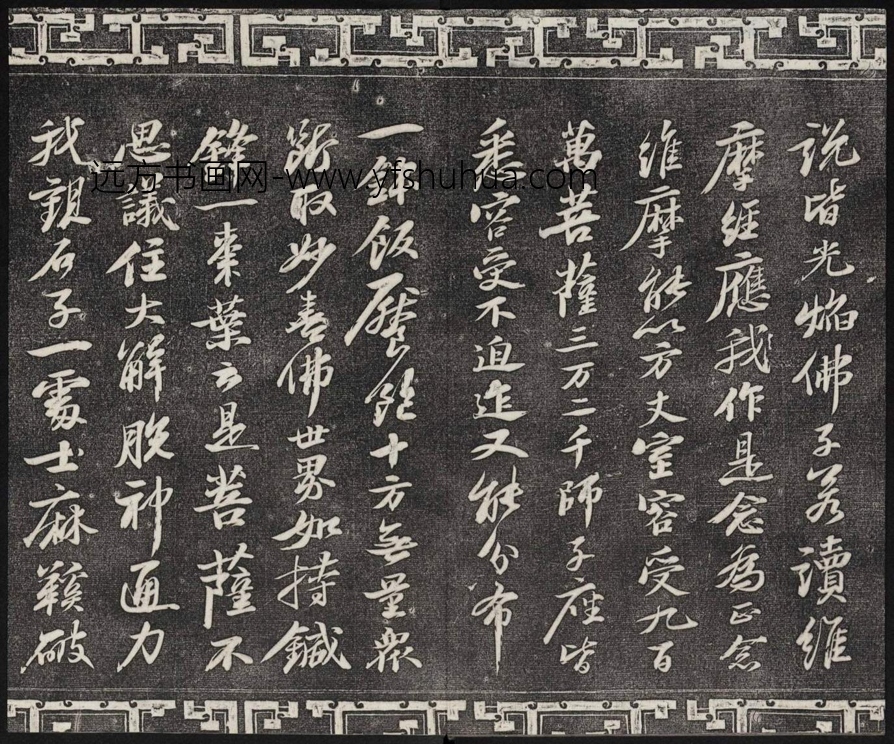 说皆光焰佛子若讀維
摩經應我作是念為正念
維摩能以方丈室容受九百
萬菩薩三万二千師子座皆
悉容受不迫迮又能分布
一鉢飯饜飽十方無量衆
斷取妙喜佛世界如持鍼
鋒一棗葉云是菩薩不
思議住大解脱神通力
我觀石子一處士麻鞵破
远方书画网-www.yfshuhua.com